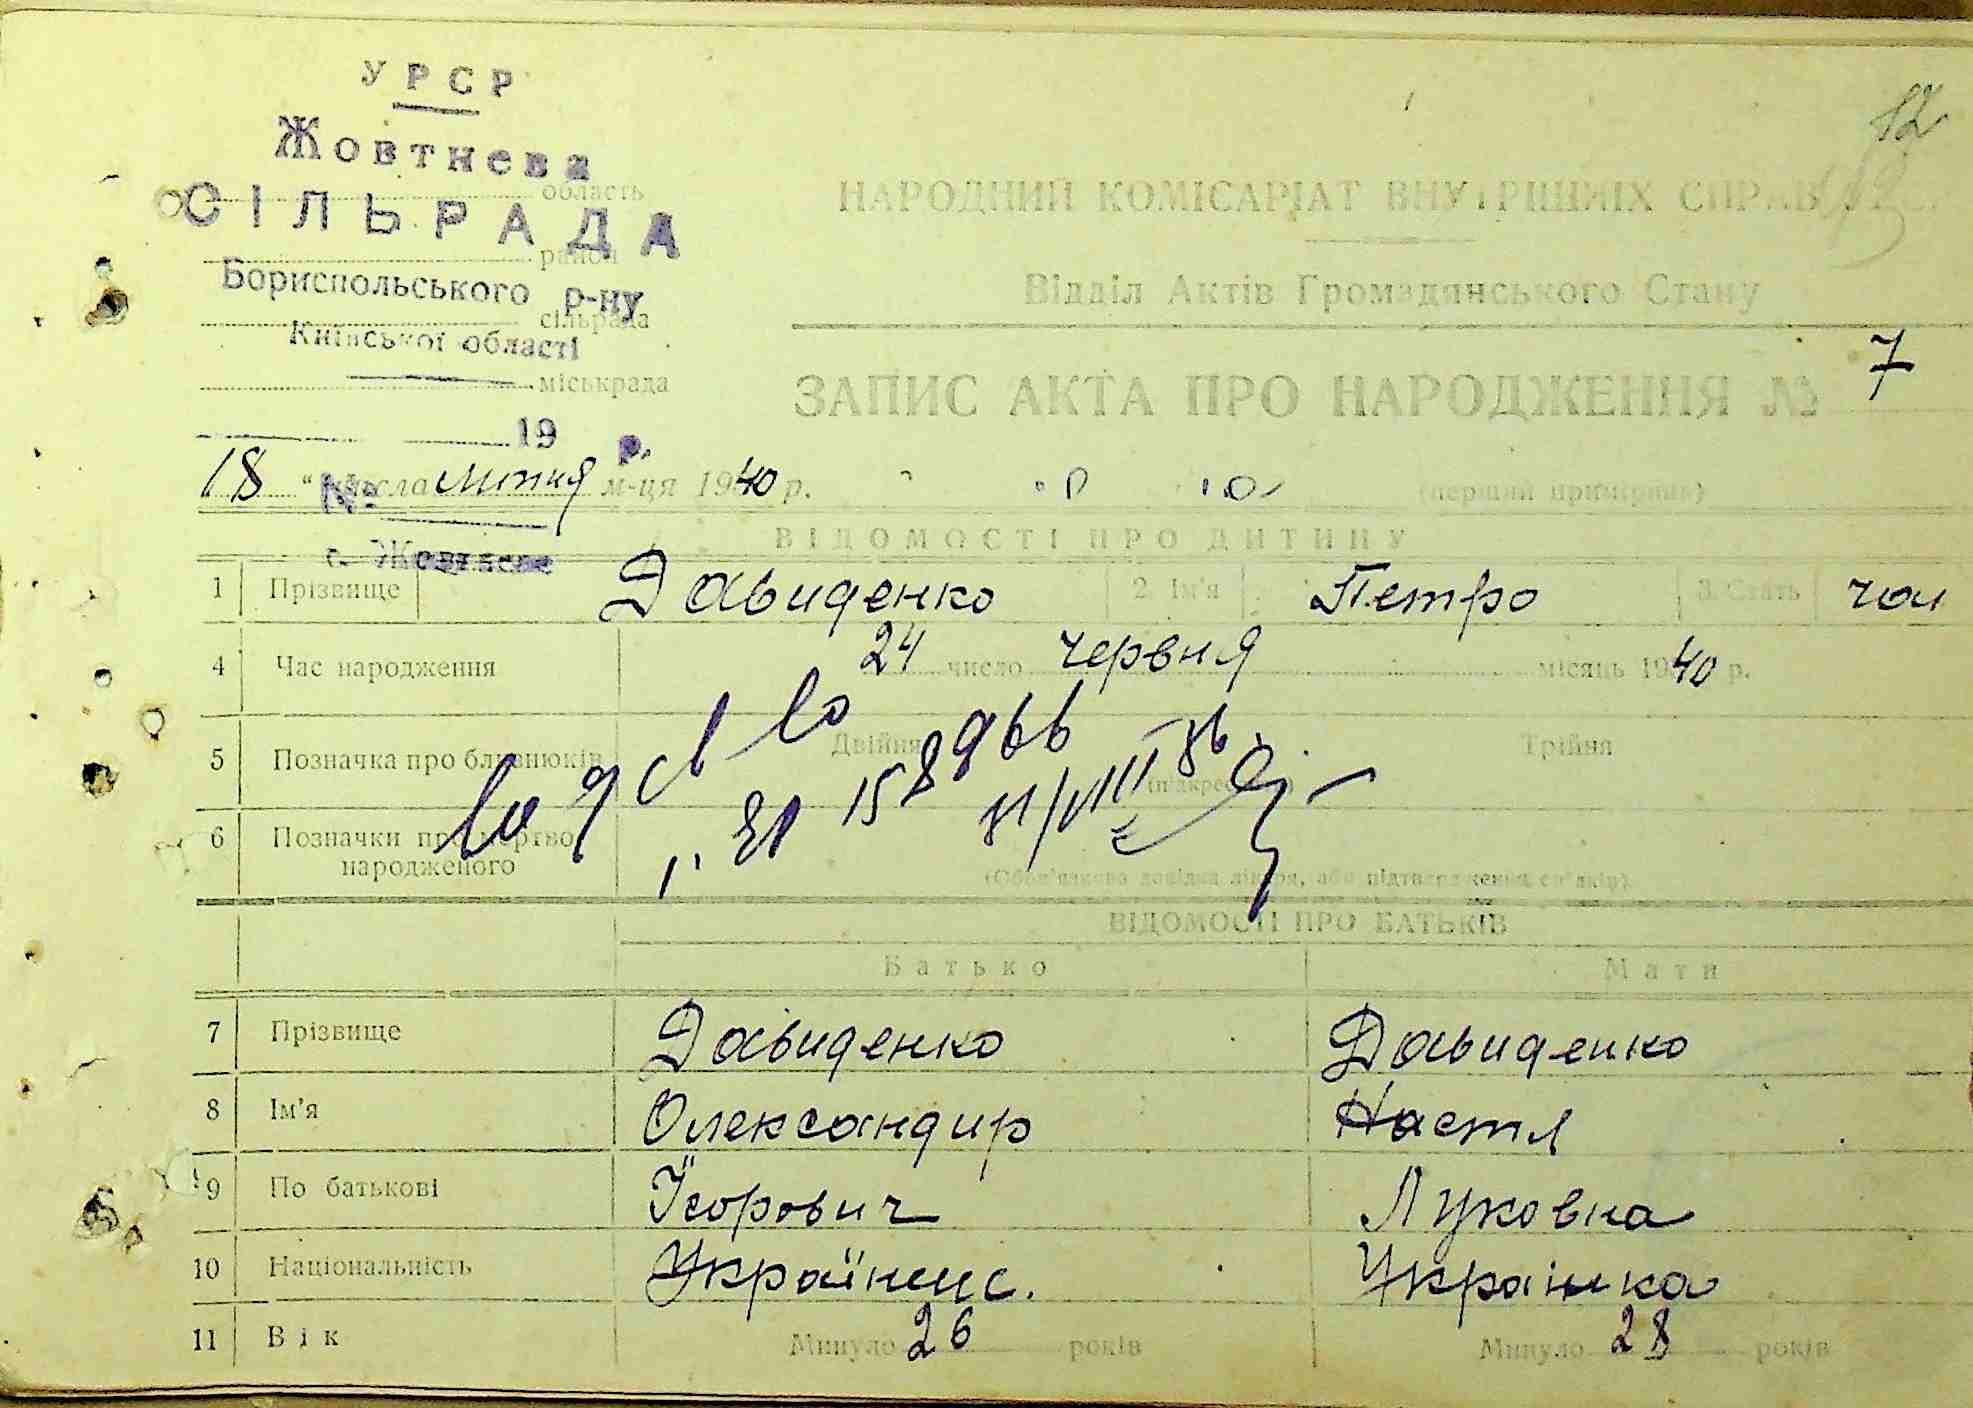 УРСР
Жовтнева
область
СІЛЬРАДА
район
Бориспольського р-ну
сільрада
Київської області
міськрада
19 р.
12
НАРОДНИЙ КОМІСАРІАТ ВНУТРІШНІХ СПРАВ
Відділ Актів Громадянського Стану
ЗАПИС АКТА ПРО НАРОДЖЕННЯ № 7
18 " числа липня м-ця 1940 р.
(перший примірник)
№
с. Жовтневе
ВІДОМОСТІ ПРО ДИТИНУ
1 Прізвище Давиденко 2. Ім'я Петро 3. Стать чол
4 Час народження 24 число червня місяць 1940 р.
5 Позначка про близнюків Двійня Трійня
(підкреслити)
158966
6 Позначки про мертво народженого
(Обов'язкова довідка лікаря, або підтвердження свідків)
ВІДОМОСТІ ПРО БАТЬКІВ
Батько Мати
7 Прізвище Давиденко Давиденко
8 Ім'я Олександир Настя
9 По батькові Луковна
10 Національність Українец. Українка
11 Вік Минуло 26 років Минуло 28 років